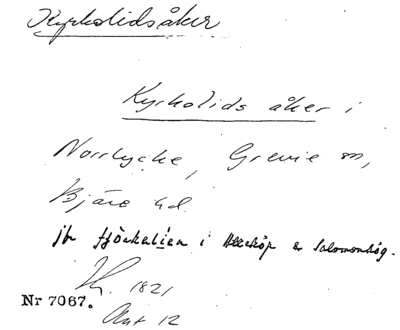 Kyrkolidsåker
Kyrkolids åker i
Norrlycke, Grevie sn,
Bjäre hd.
jfr i Alleköp o Salomonhög.
1821
Nr 7067.
Akt 12